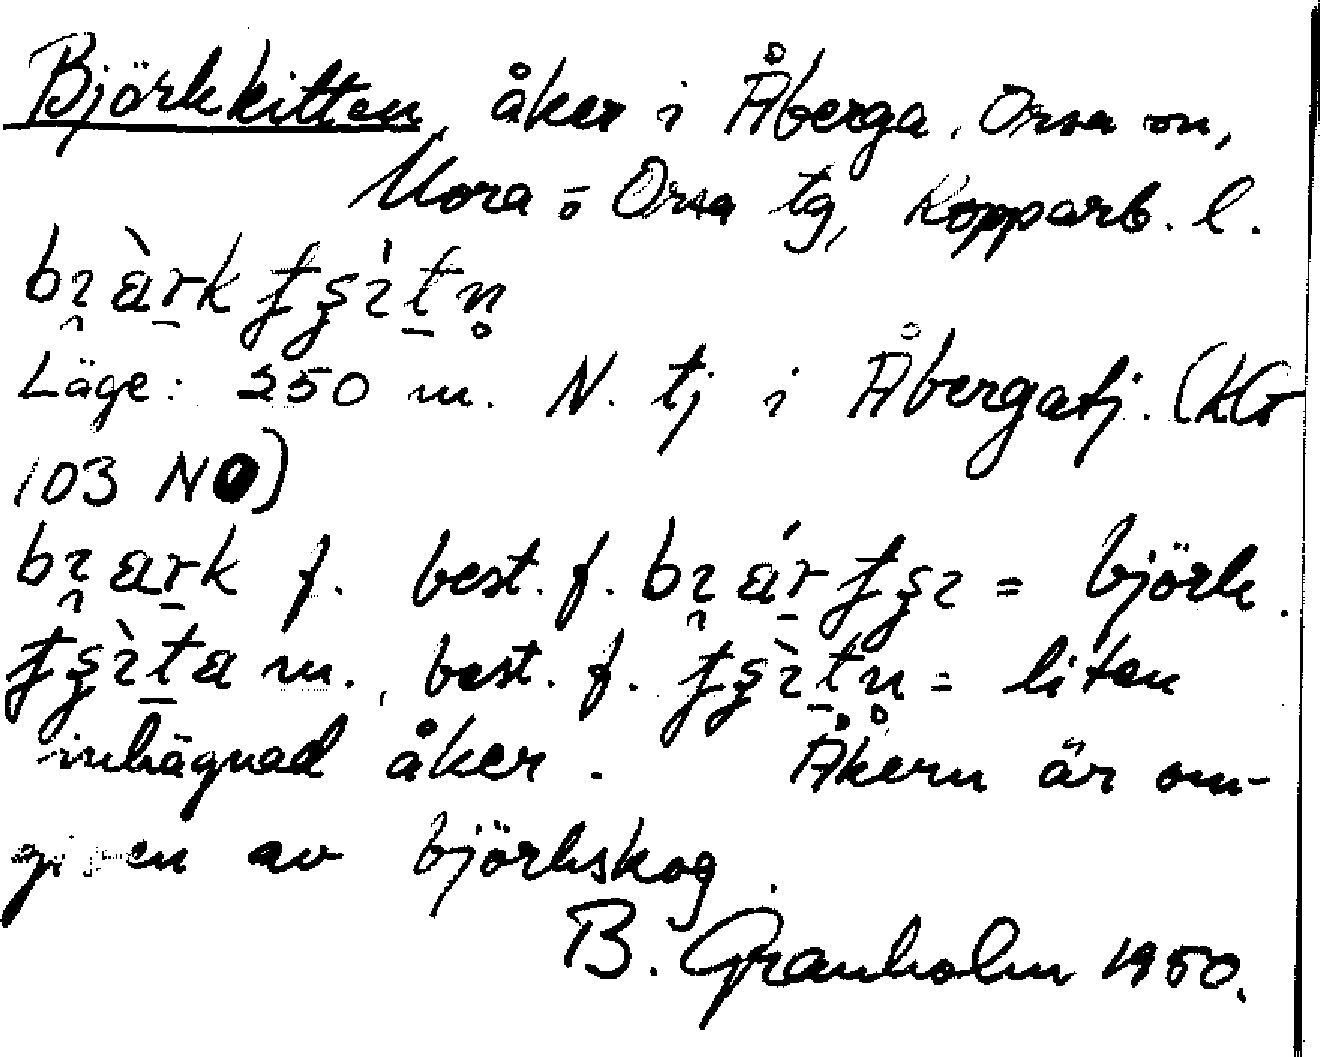 Björkkitten, åker i Åberga, Orsa sn,
Mora o Orsa tg, Kopparb. l.
Läge: 250 m. N. tj i Åbergatj. (KG
103 NO)
f. best. f. = björk.
m., best. f. = liten
inhägnad åker. Åkern är om-
given av björkskog.
B. Granholm 1950.